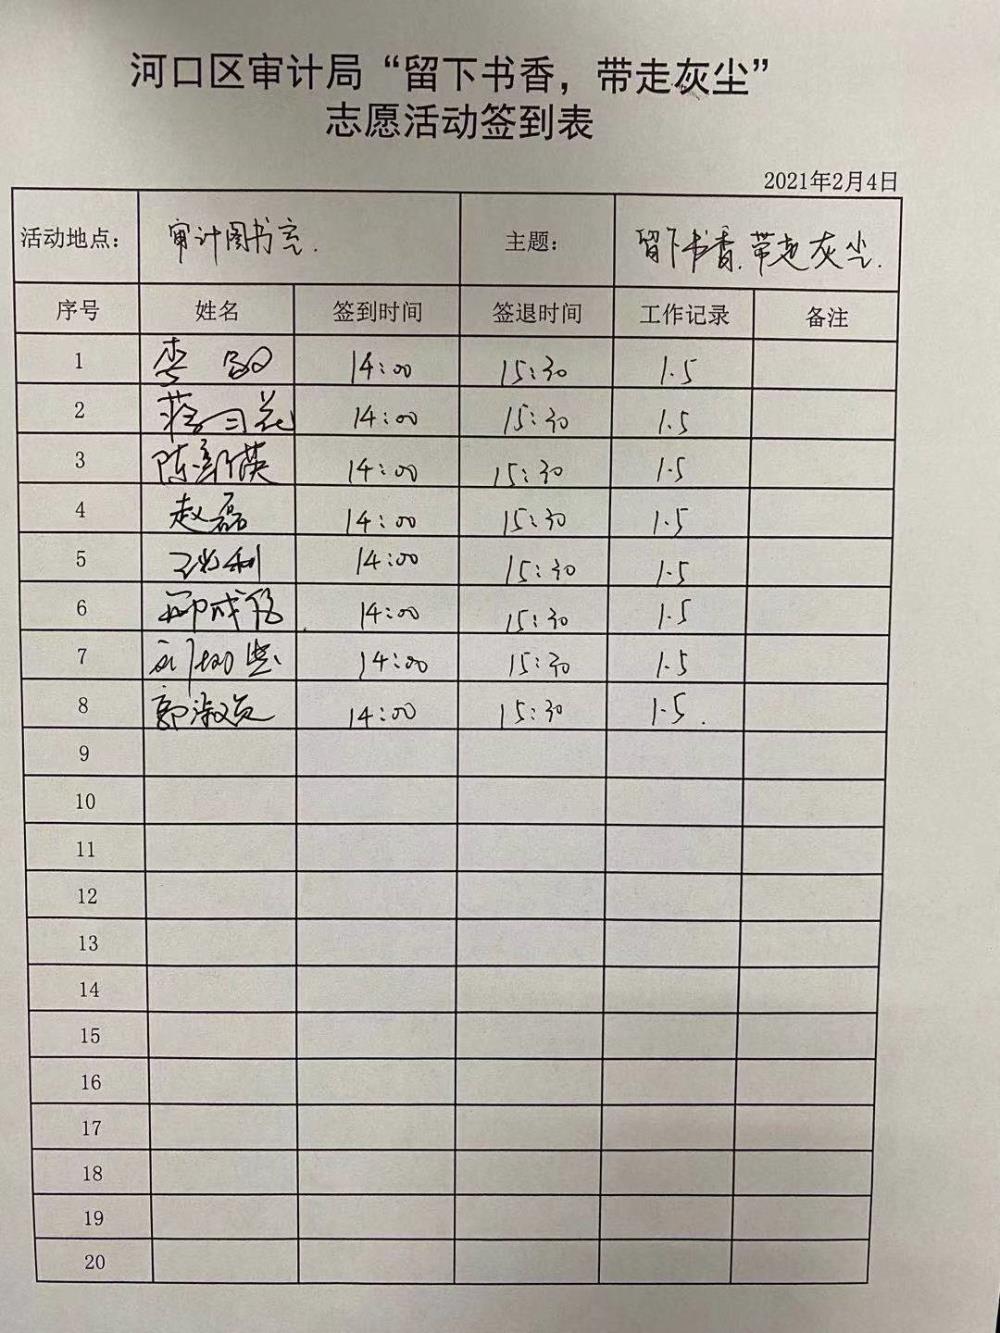 河口区审计局“留下书香，带走灰尘”
志愿活动签到表
2021年2月4日
活动地点： 审计图书室. 主题： 留下书香.带走灰尘.
序号 姓名 签到时间 签退时间 工作记录 备注
1 李 14:00 15:30 1.5
2 14:00 15:30 1.5
3 陈新英 14:00 15:30 1.5
4 赵磊 14:00 15:30 1.5
5 14:00 15:30 1.5
6 14:00 15:30 1.5
7 14:00 15:30 1.5
8 郭淑贞 14:00 15:30 1.5.
9
10
11
12
13
14
15
16
17
18
19
20